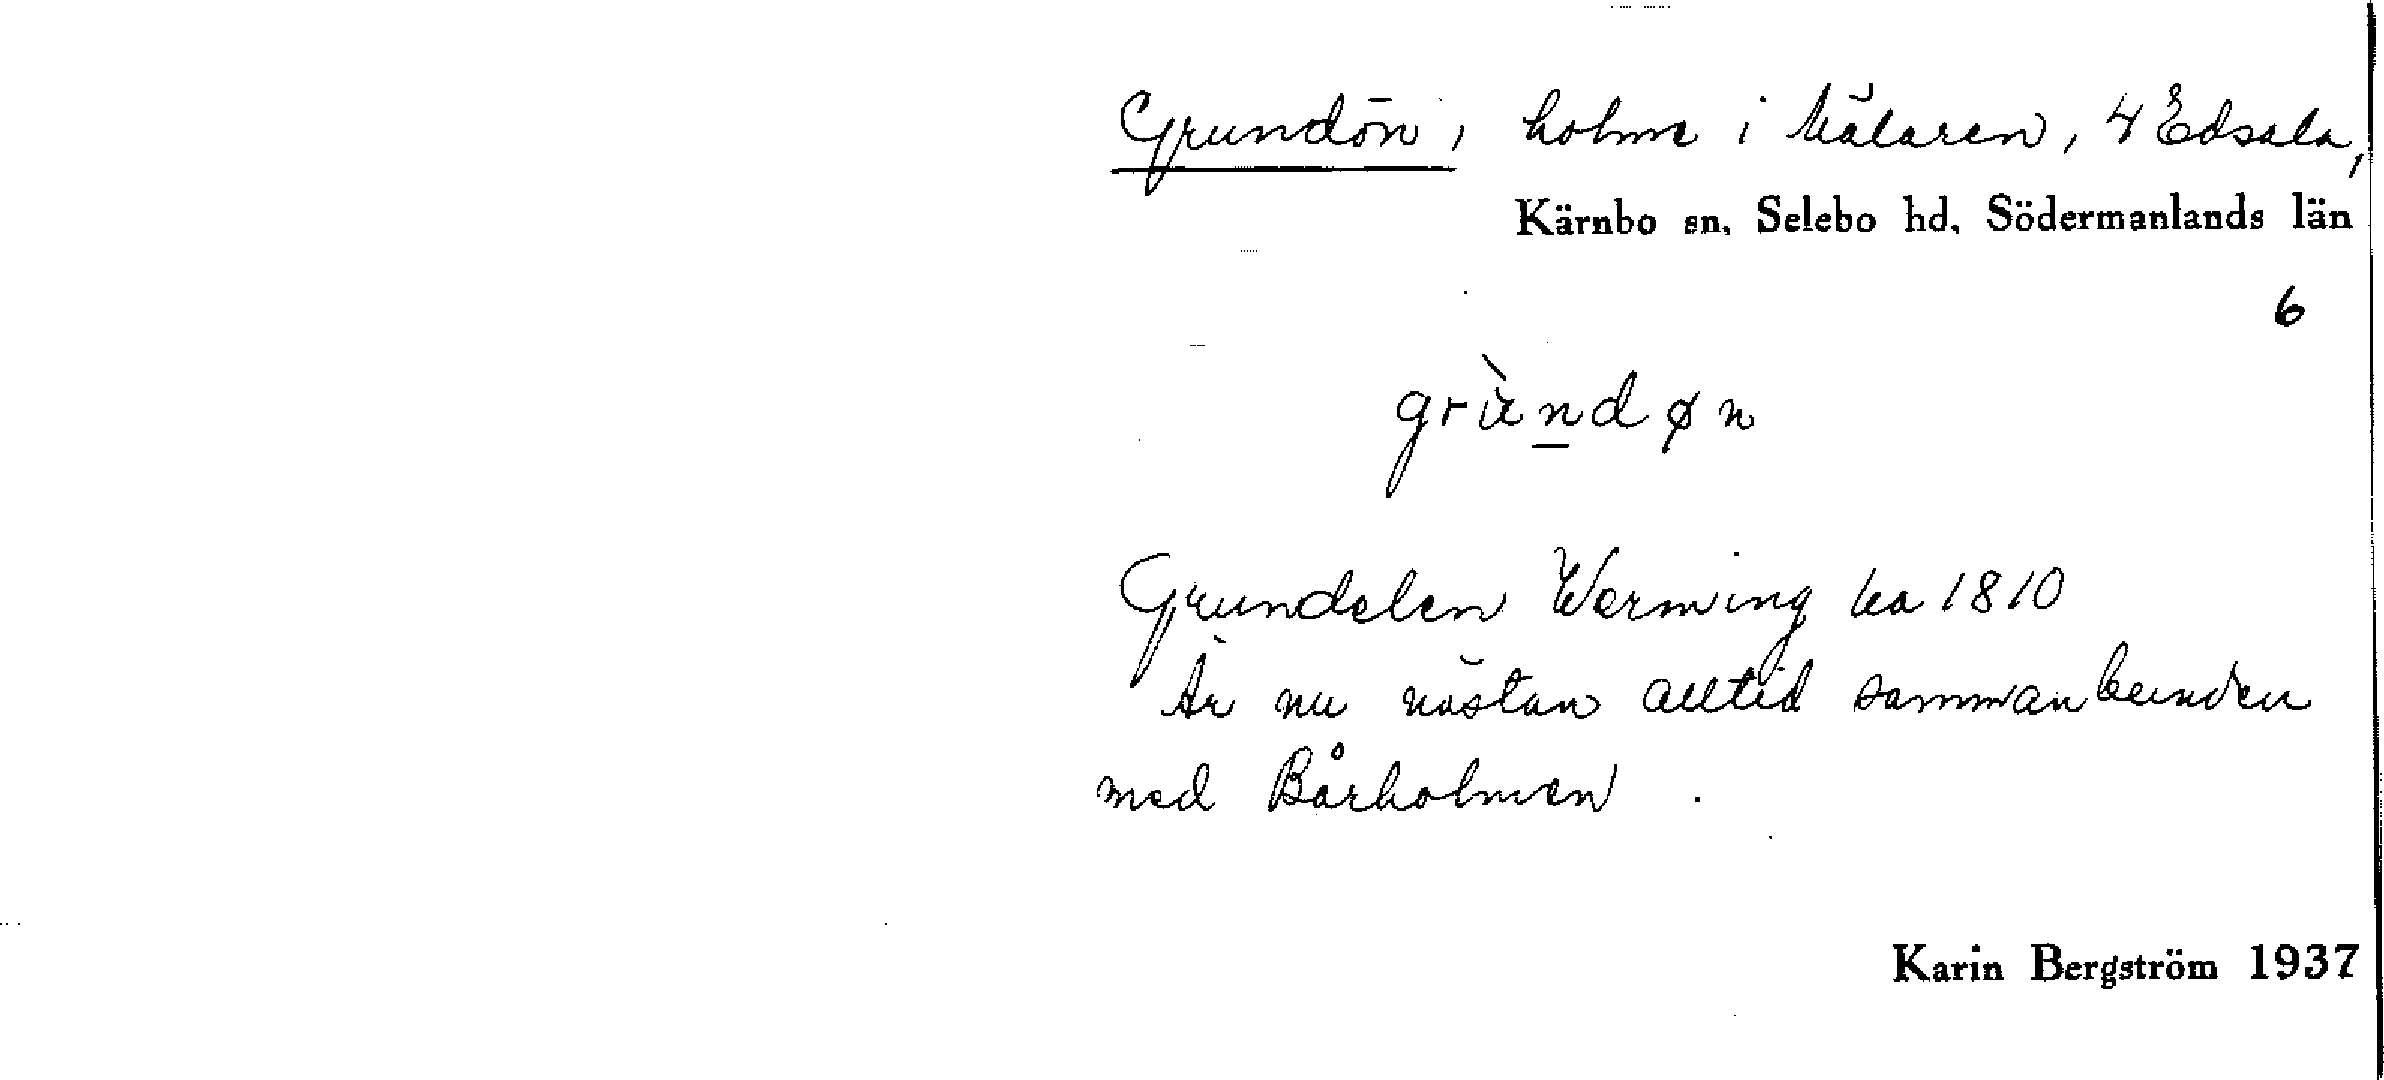 Grundön, holme i Mälaren, 4 Edsala,
Kärnbo sn, Selebo hd, Södermanlands län
6
grùndøn
Grundelen Werming ka 1810
Är nu nästan alltid sammanbunden
med Bårholmen.
Karin Bergström 1937